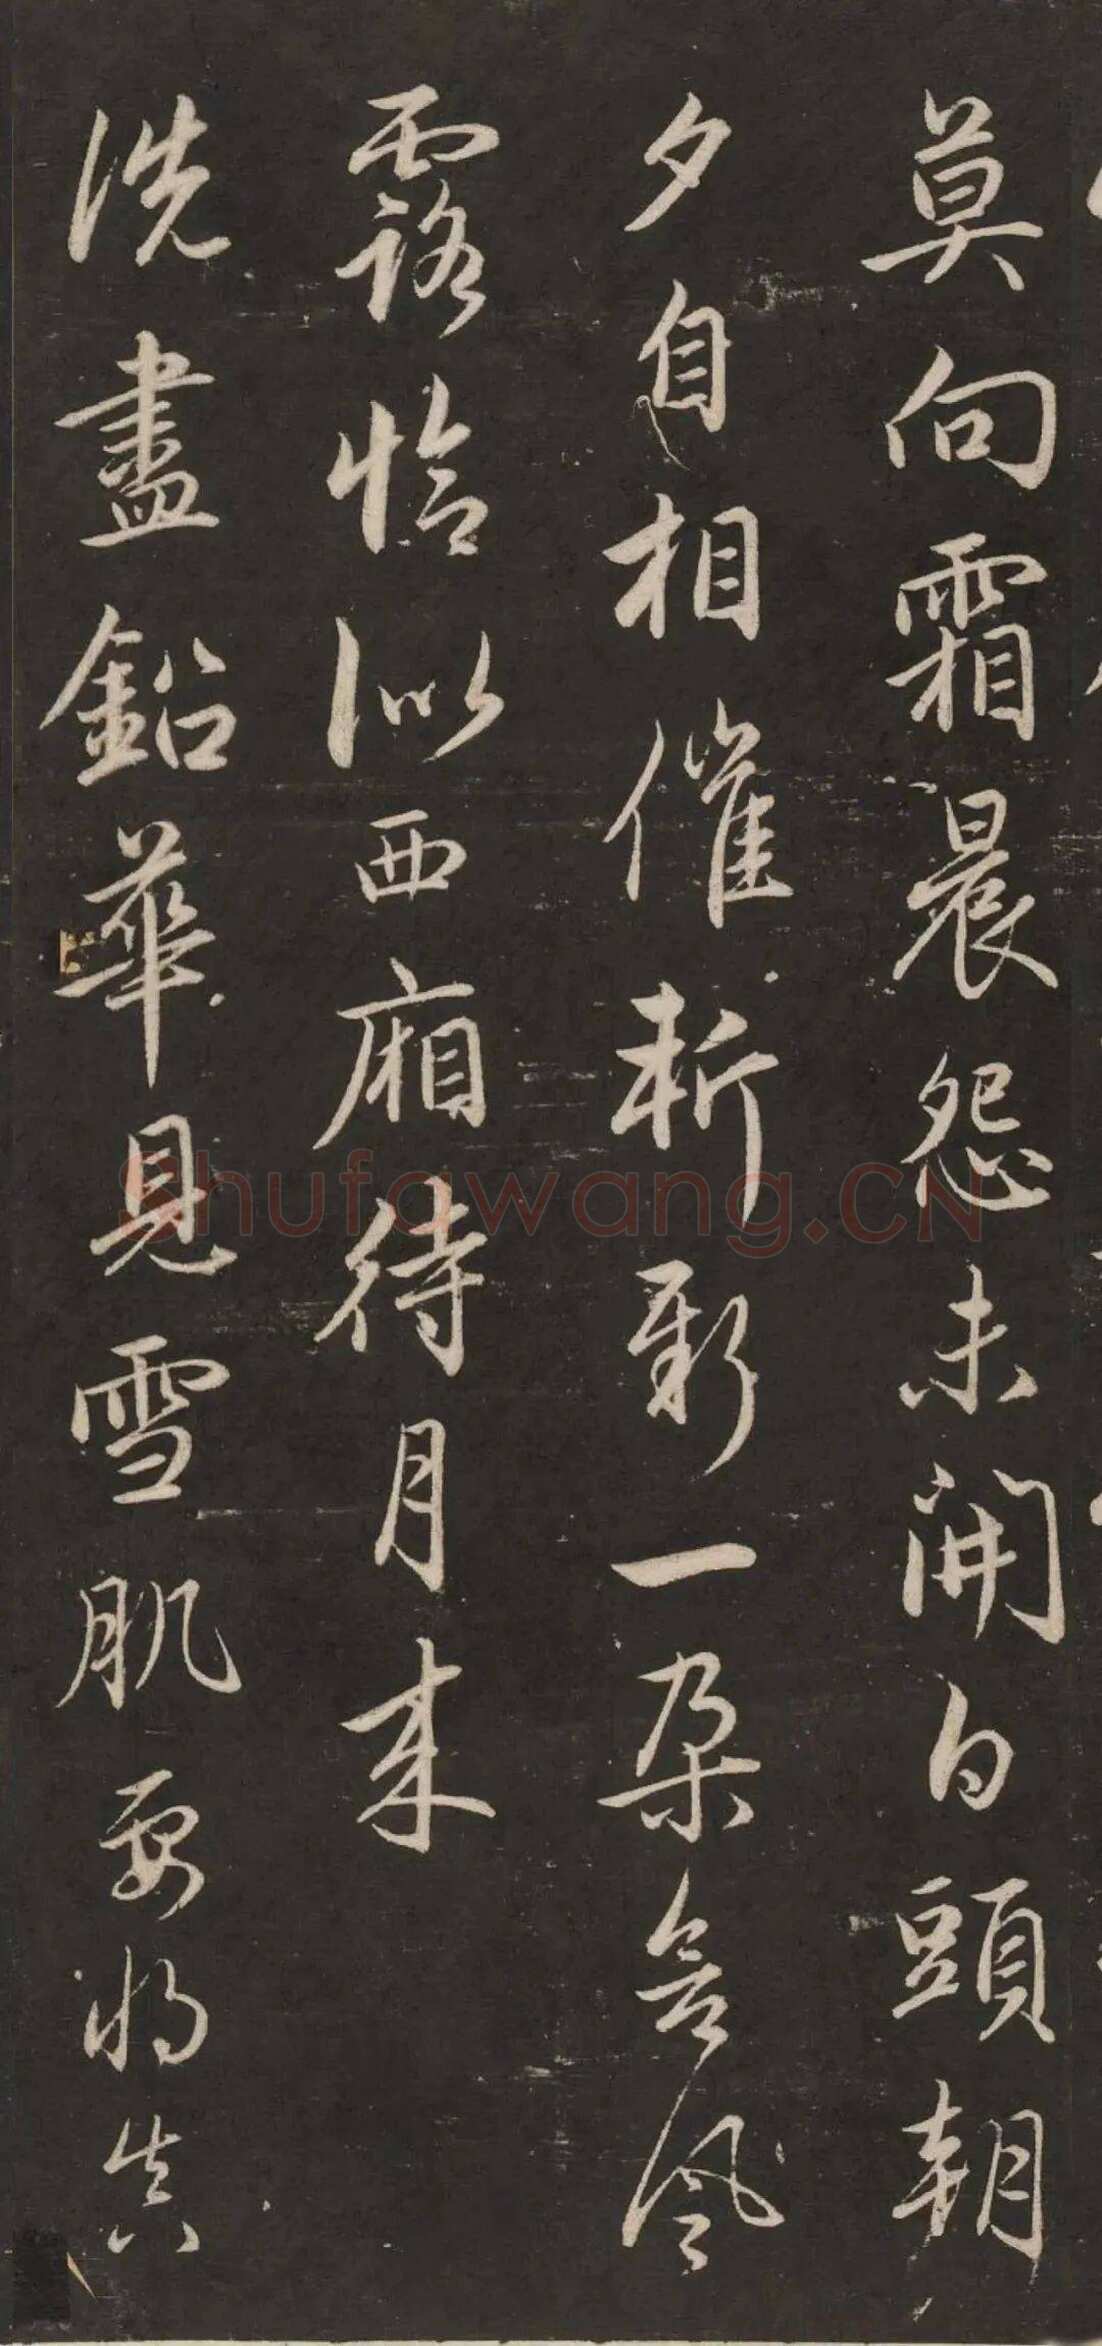 莫向霜晨怨未開白頭朝
夕自相催斬新一朶含風
露恰似西廂待月来
洗盡鉛華見雪肌要将真
Shufawang.CN